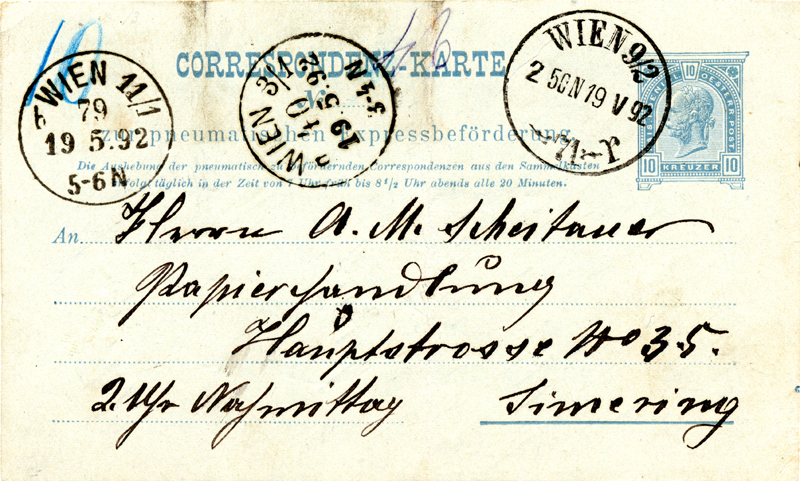 CORRESPONDENZ-KARTE
zur pneumatischen Expressbeförderung.
Die Aushebung der pneumatisch zu befördernden Correspondenzen aus den Sammelkästen
erfolgt täglich in der Zeit von 7 Uhr früh bis 8 1/2 Uhr abends alle 20 Minuten.
WIEN 11/1
79
19 5.92
5-6 N
WIEN 3/1
40
19 5.92
3-4 N
WIEN 9/2
2 50 N 19 V 92
71
10
10 KREUZER 10
An Herrn A. M. Scheitauer
Papierhandlung
Hauptstrasse No 35.
2 Uhr Nachmittag Simering